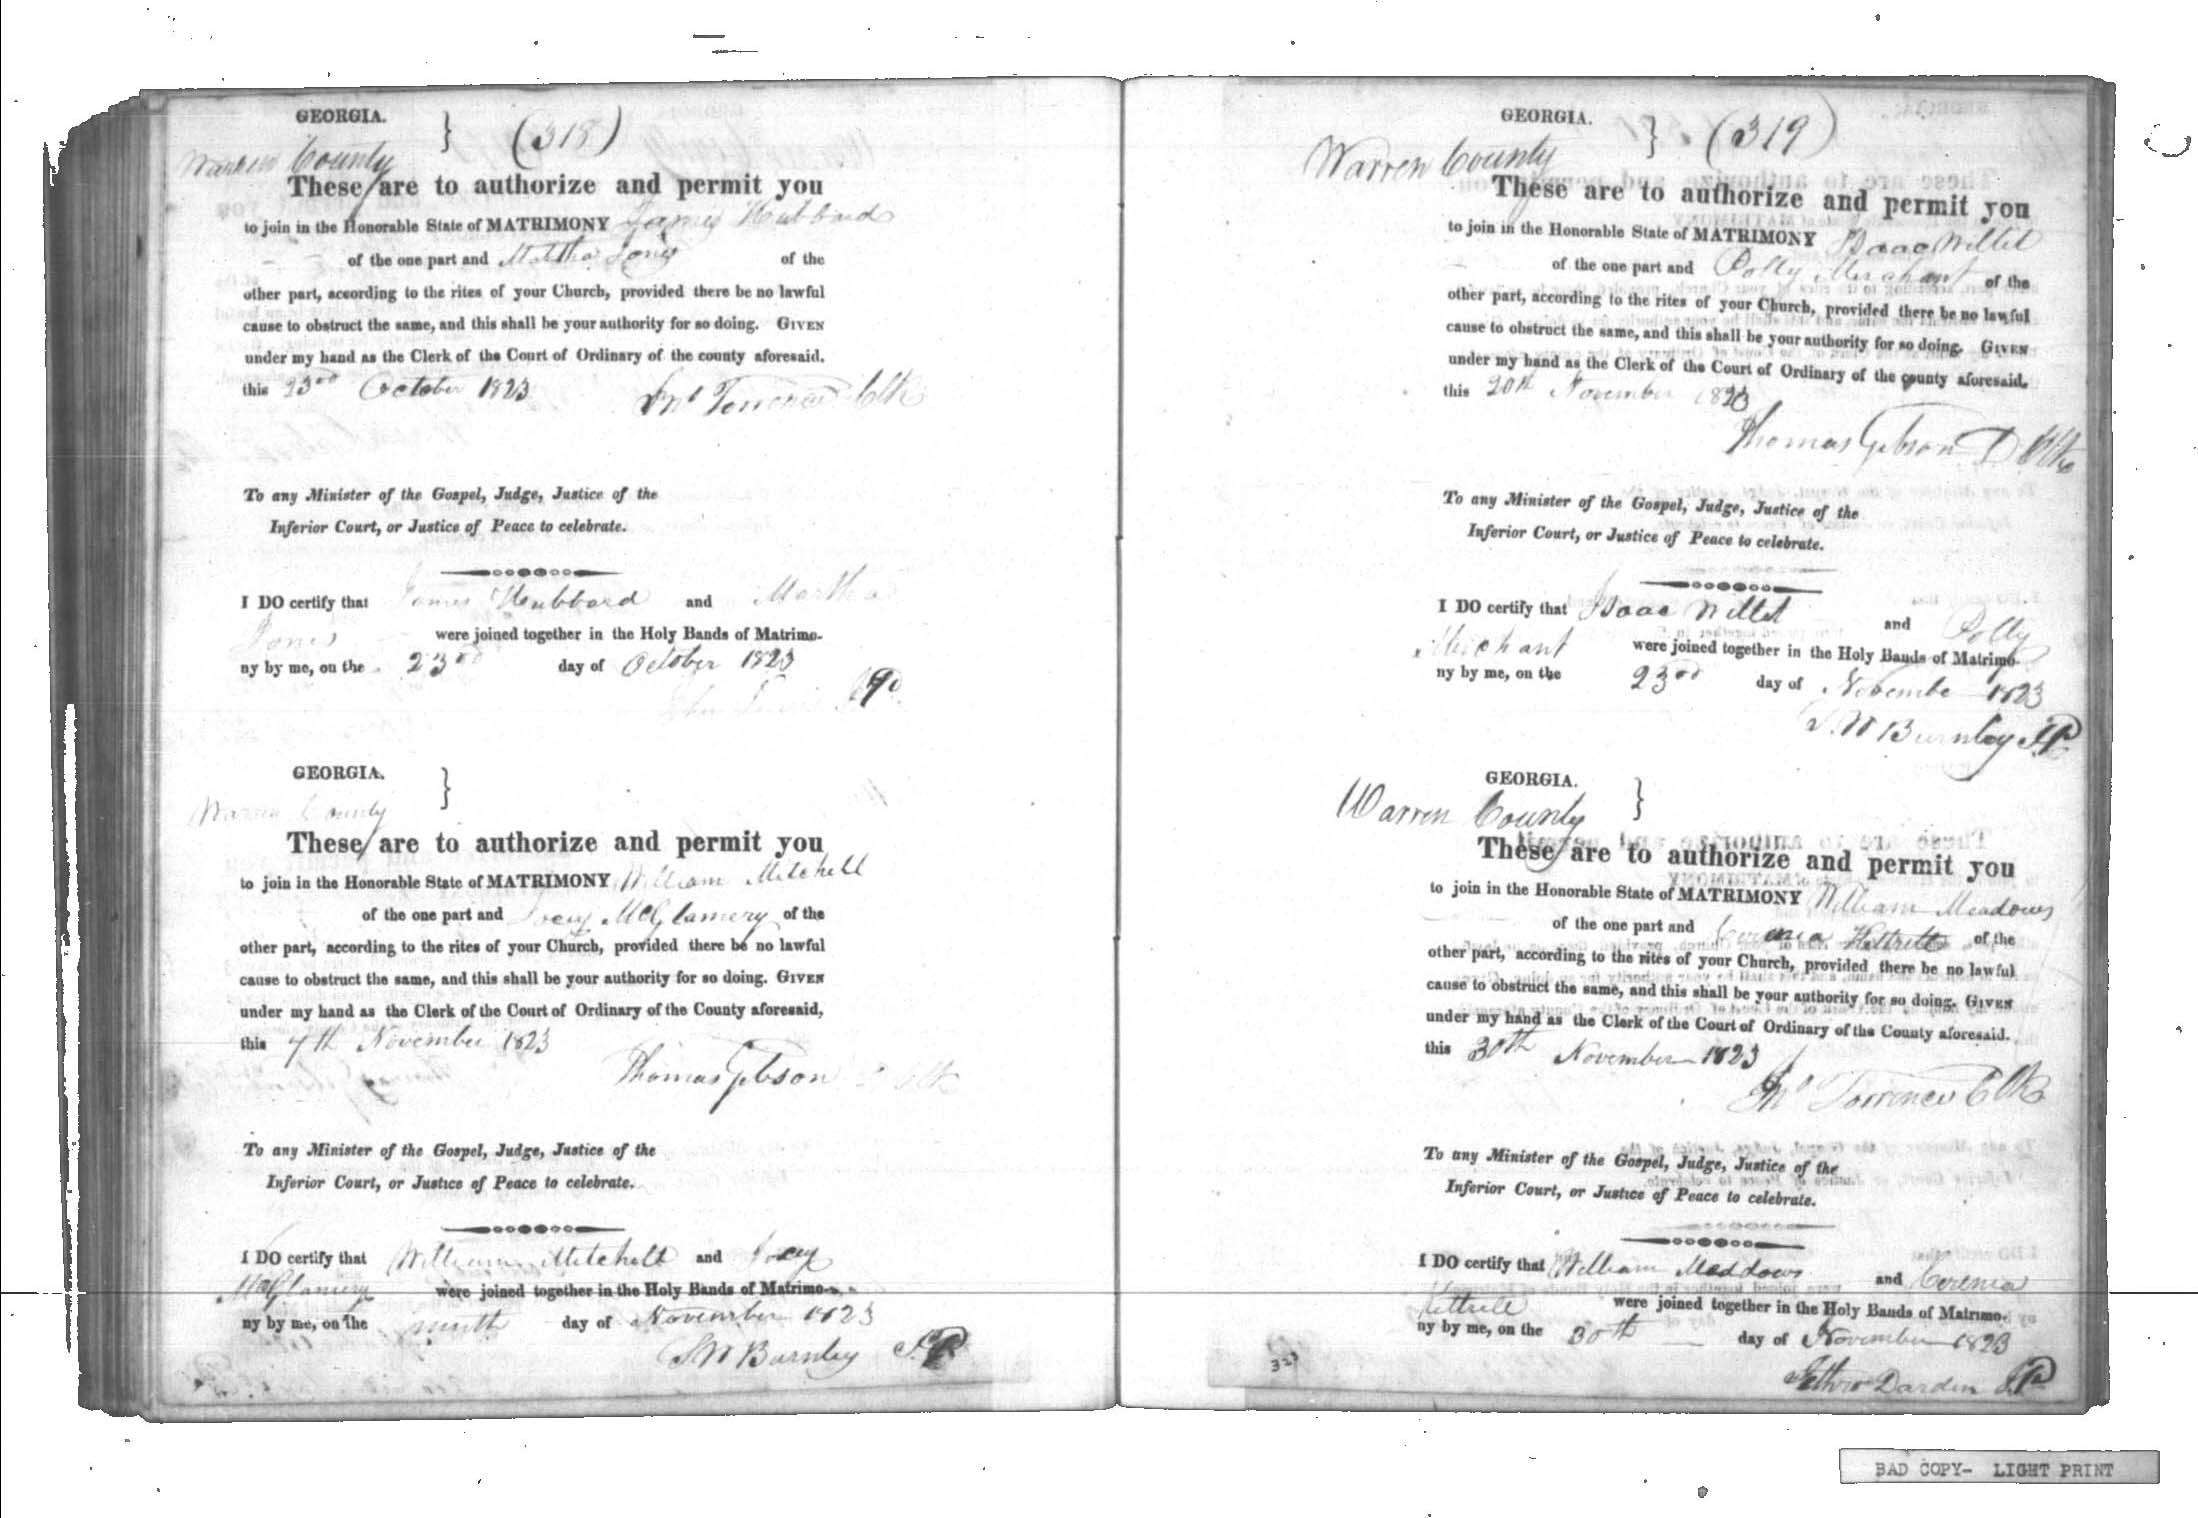 GEORGIA.
} (318)
Warren County
These are to authorize and permit you
to join in the Honorable State of MATRIMONY James Hubbard
of the one part and Martha Jones of the
other part, according to the rites of your Church, provided there be no lawful
cause to obstruct the same, and this shall be your authority for so doing. GIVEN
under my hand as the Clerk of the Court of Ordinary of the county aforesaid.
this 23rd October 1823
Jno Torrence Clk
To any Minister of the Gospel, Judge, Justice of the
Inferior Court, or Justice of Peace to celebrate.
I DO certify that James Hubbard and Martha
Jones were joined together in the Holy Bands of Matrimo-
ny by me, on the 23rd day of October 1823
GEORGIA.
}
Warren County
These are to authorize and permit you
to join in the Honorable State of MATRIMONY William Mitchell
of the one part and McGlamery of the
other part, according to the rites of your Church, provided there be no lawful
cause to obstruct the same, and this shall be your authority for so doing. GIVEN
under my hand as the Clerk of the Court of Ordinary of the County aforesaid,
this 7th November 1823
Thomas Gibson D Clk
To any Minister of the Gospel, Judge, Justice of the
Inferior Court, or Justice of Peace to celebrate.
I DO certify that William Mitchell and
McGlamery were joined together in the Holy Bands of Matrimo-
ny by me, on the ninth day of November 1823
S W Burnley J.P.
GEORGIA.
} (319)
Warren County
These are to authorize and permit you
to join in the Honorable State of MATRIMONY Isaac Willet
of the one part and Polly Merchant of the
other part, according to the rites of your Church, provided there be no lawful
cause to obstruct the same, and this shall be your authority for so doing. GIVEN
under my hand as the Clerk of the Court of Ordinary of the county aforesaid.
this 20th November 1823
Thomas Gibson D. Clk
To any Minister of the Gospel, Judge, Justice of the
Inferior Court, or Justice of Peace to celebrate.
I DO certify that Isaac Willet and Polly
Merchant were joined together in the Holy Bands of Matrimo-
ny by me, on the 23rd day of Novembe 1823
S. W Burnley J.P.
GEORGIA.
}
Warren County
These are to authorize and permit you
to join in the Honorable State of MATRIMONY William Meadows
of the one part and Cerenia Kittrelle of the
other part, according to the rites of your Church, provided there be no lawful
cause to obstruct the same, and this shall be your authority for so doing. GIVEN
under my hand as the Clerk of the Court of Ordinary of the County aforesaid.
this 30th November 1823
Jno Torrence Clk
To any Minister of the Gospel, Judge, Justice of the
Inferior Court, or Justice of Peace to celebrate.
I DO certify that William Meddows and Cerenia
Kittrelle were joined together in the Holy Bands of Matrimo-
ny by me, on the 30th day of November 1823
323 Jethro Darden J.P.
BAD COPY- LIGHT PRINT